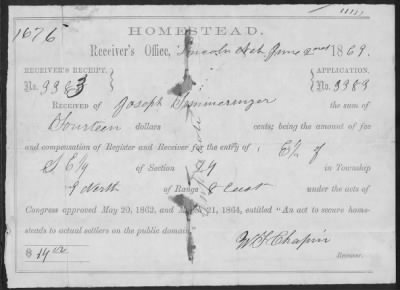 1676
HOMESTEAD.
Receiver's Office, Lincoln Neb June 2nd 1869.
RECEIVER'S RECEIPT, APPLICATION,
No. 3383 No. 3383
RECEIVED OF Joseph the sum of
Fourteen dollars cents; being the amount of fee
and compensation of Register and Receiver for the entry of E½ of
S E¼ of Section 29 in Township
9 North of Range 8 East under the acts of
Congress approved May 20, 1862, and March 21, 1864, entitled "An act to secure home-
steads to actual settlers on the public domain."
$ 14 W F Chapin
Receiver.